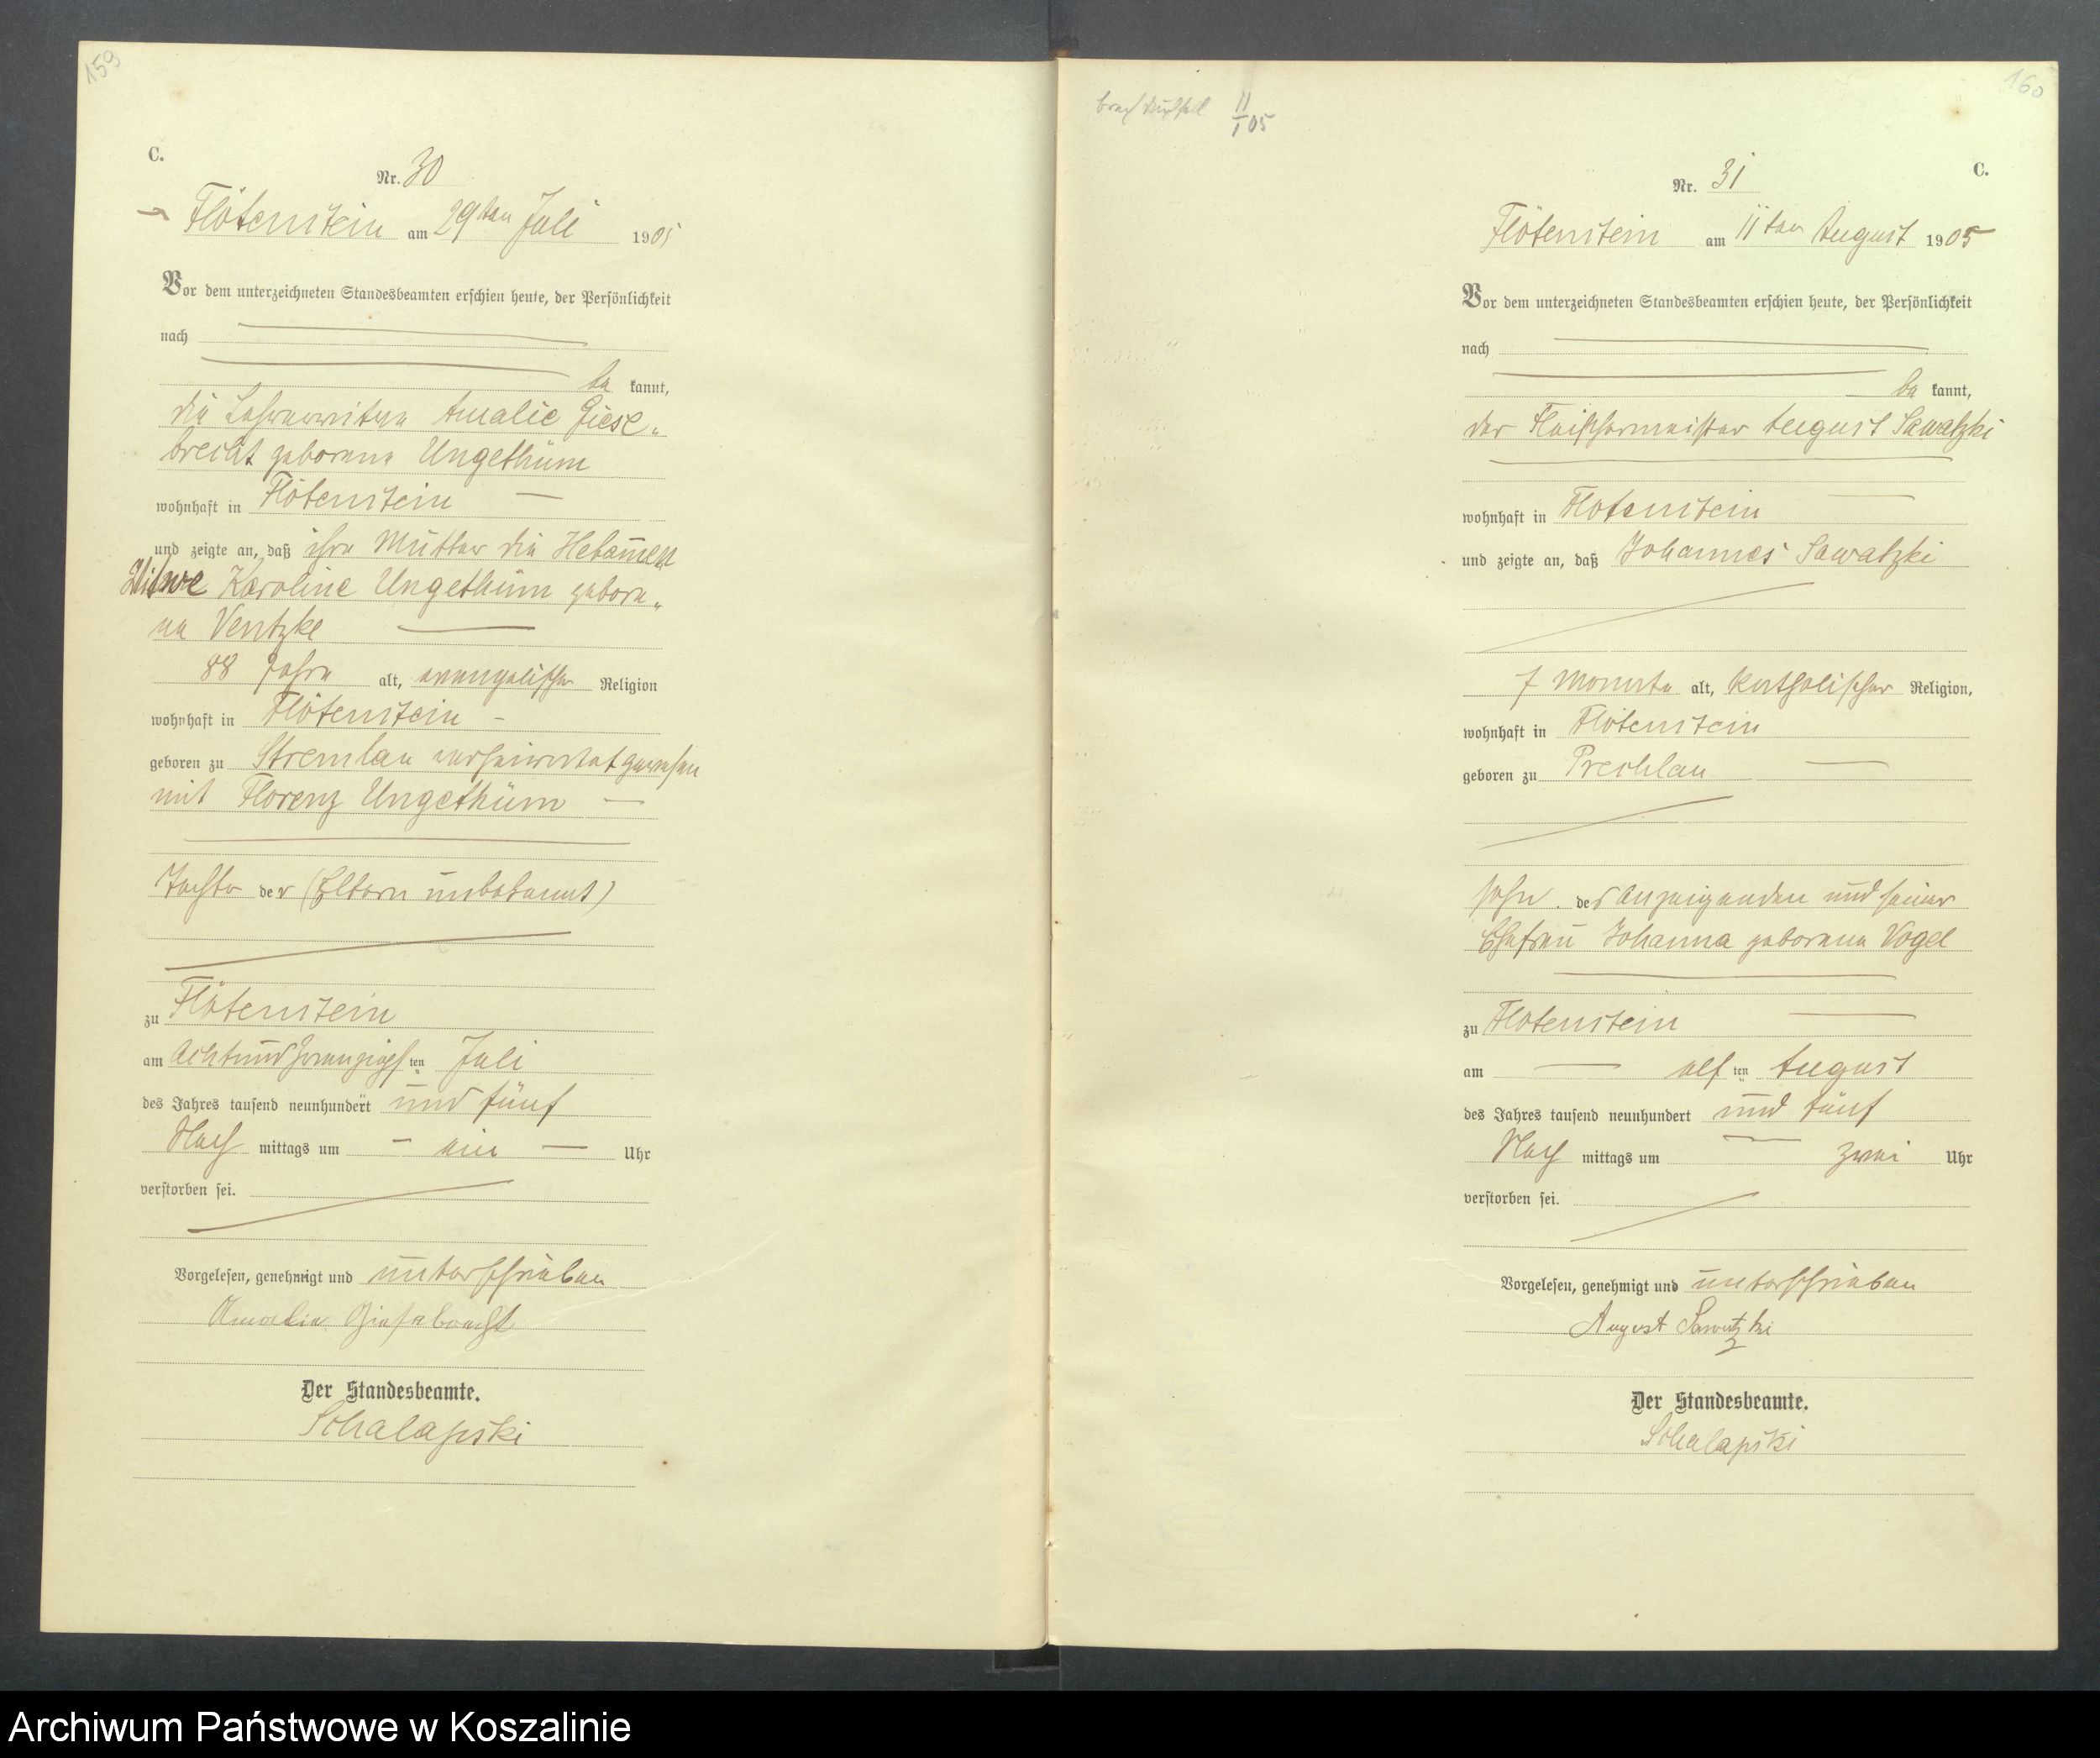 159
C.
Nr. 30
Flötenstein am 29ten Juli 1905
Vor dem unterzeichneten Standesbeamten erschien heute, der Persönlichkeit
nach
be kannt,
die Amalie Giese„
brecht geborene Ungethüm
wohnhaft in Flötenstein
und zeigte an, daß ihre Mutter die Hebam̅en
Witwe Karoline Ungethüm gebore„
ne Ventzke
88 Jahre alt, evangelischer Religion
wohnhaft in Flötenstein
geboren zu Stremlau verheirathet gewesen
mit Florenz Ungethüm
Tochter der (Eltern unbekannt)
zu Flötenstein
am Achtundzwanzigsten Juli
des Jahres tausend neunhundert und fünf
Nach mittags um ein Uhr
verstorben sei.
Vorgelesen, genehmigt und unterschrieben
Amalie Giesebrecht
Der Standesbeamte.
Schalapski
11/I 05
160
C.
Nr. 31
Flötenstein am 11ten August 1905
Vor dem unterzeichneten Standesbeamten erschien heute, der Persönlichkeit
nach
be kannt,
der Fleischermeister August Sawatzki
wohnhaft in Flötenstein
und zeigte an, daß Johannes Sawatzki
7 Monate alt, katholischer Religion,
wohnhaft in Flötenstein
geboren zu Prechlau
Sohn des Anzeigenden und seiner
Ehefrau Johanna geborene Vogel
zu Flötenstein
am elf ten August
des Jahres tausend neunhundert und fünf
Nach mittags um zwei Uhr
verstorben sei.
Vorgelesen, genehmigt und unterschrieben
August Sawatzki
Der Standesbeamte.
Schalapski
Archiwum Państwowe w Koszalinie